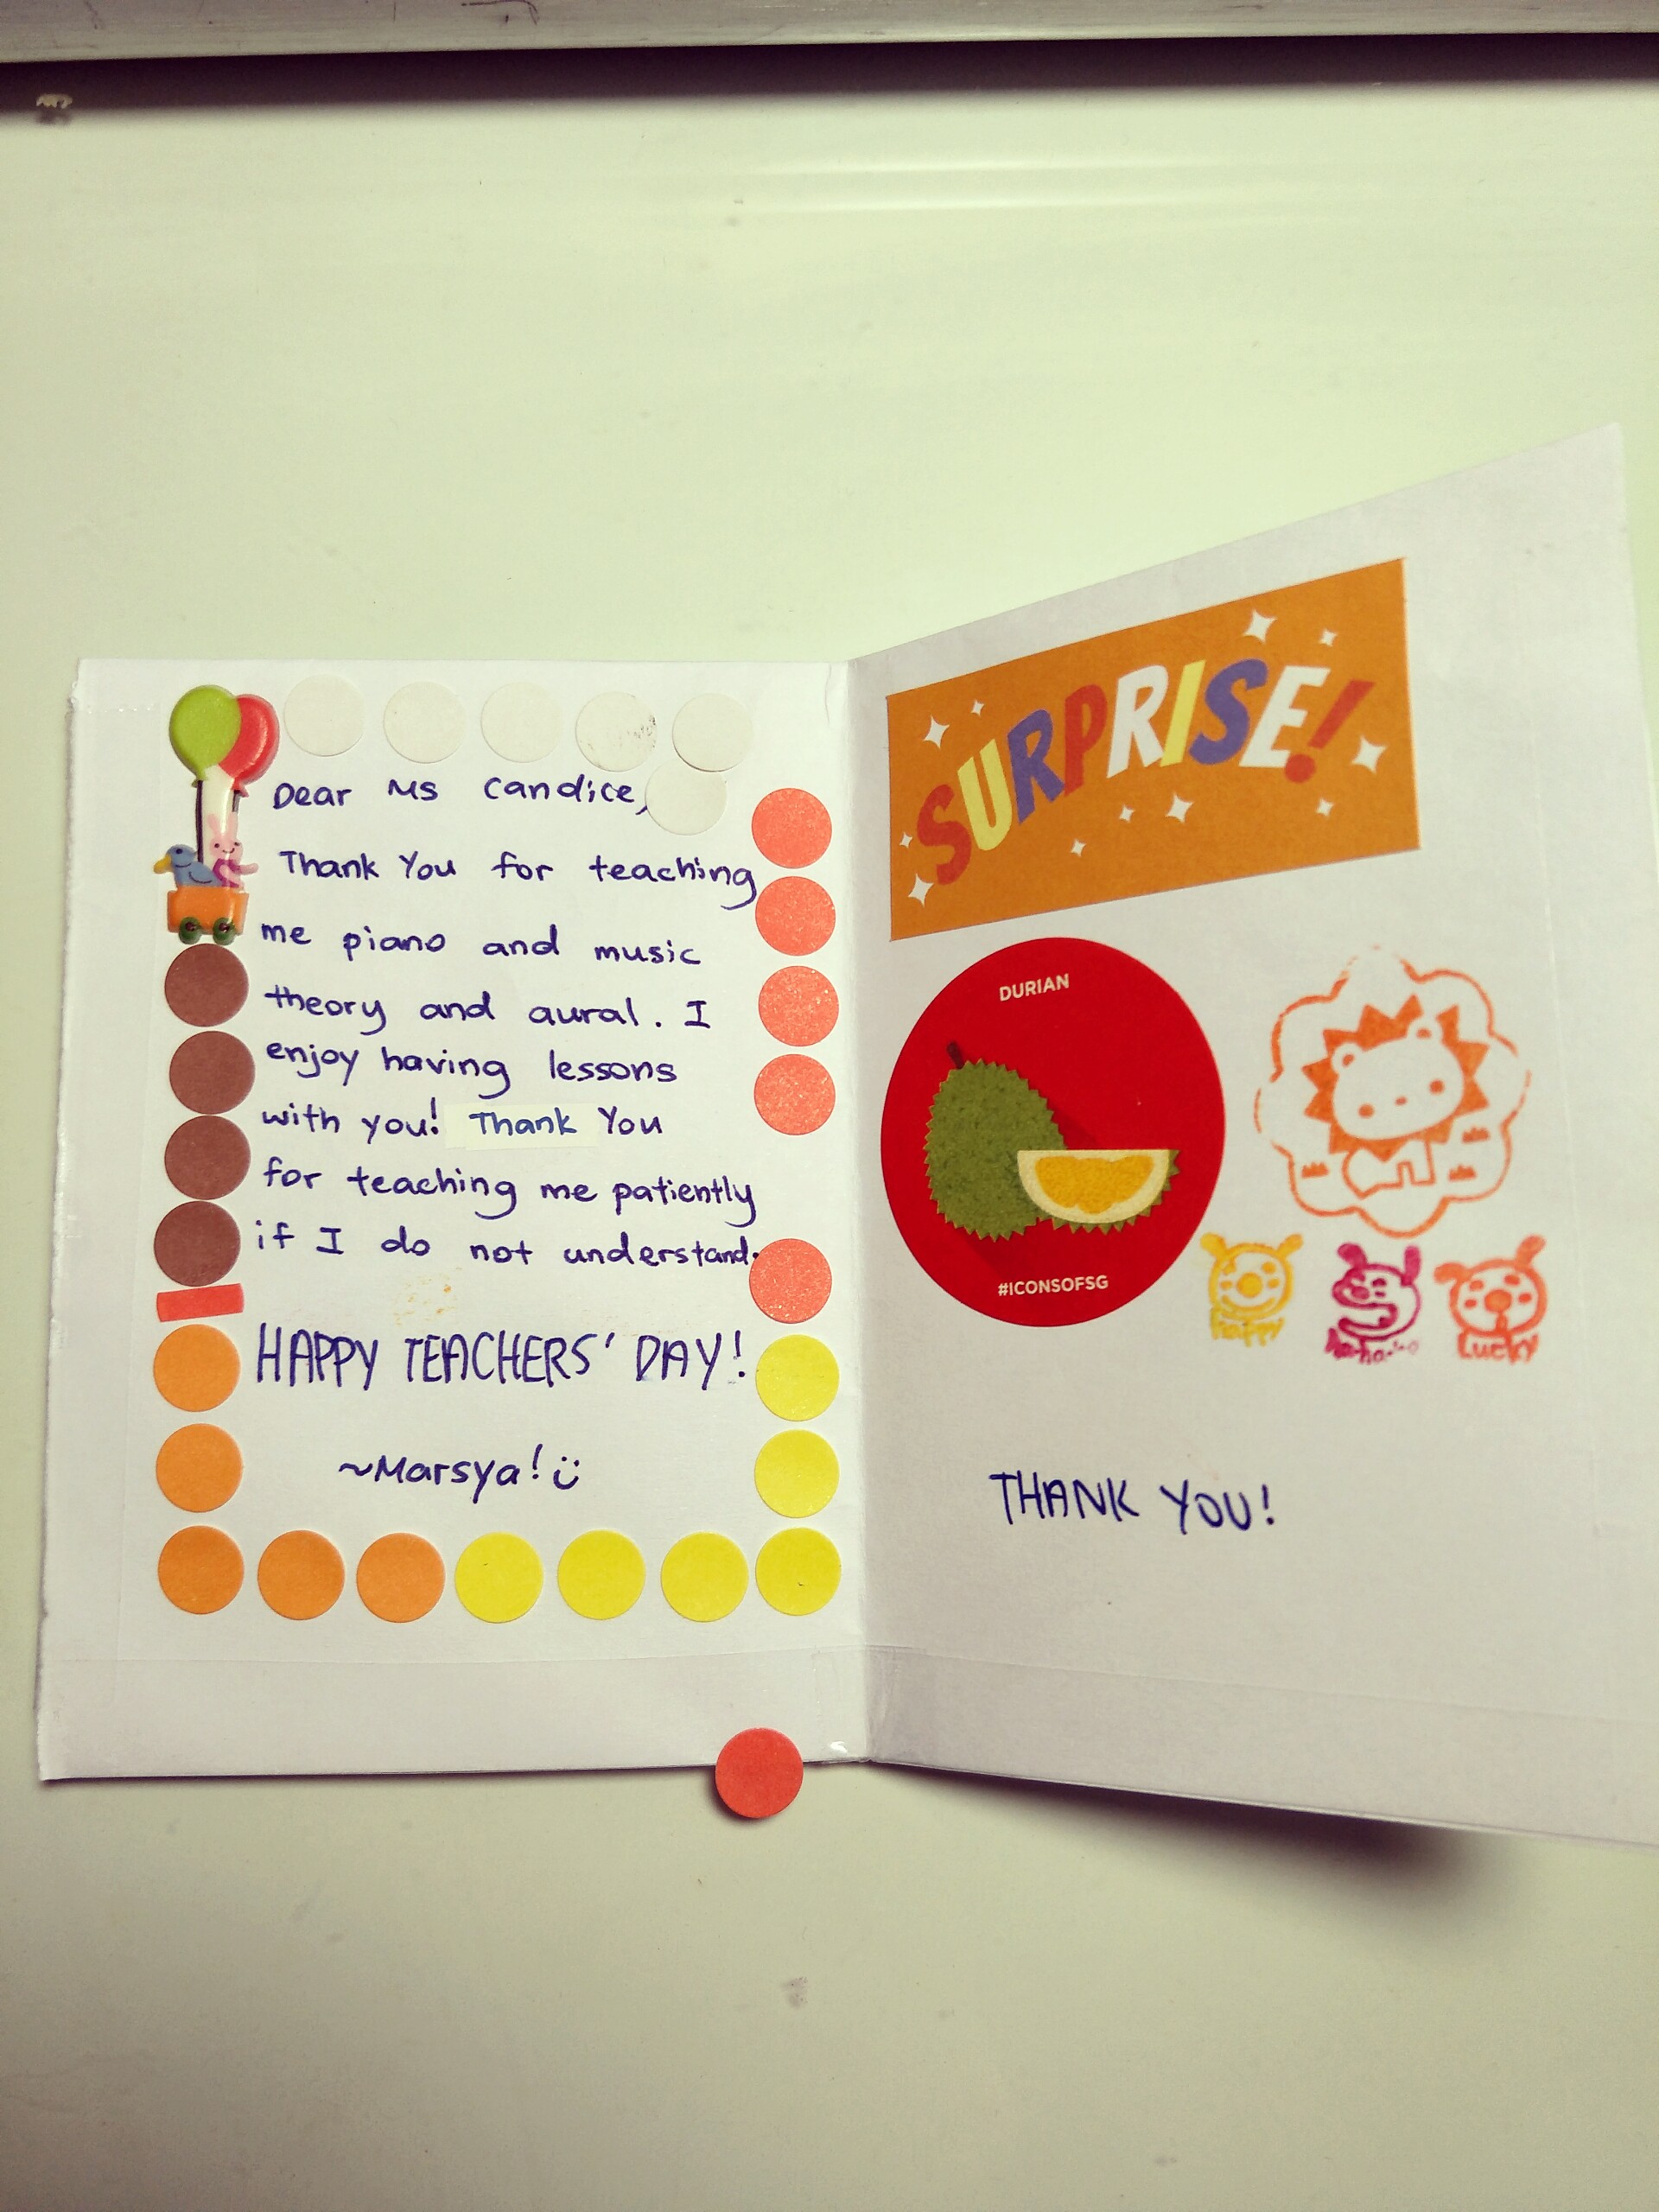 Dear Ms Candice,
Thank You for teaching
me piano and music
theory and aural. I
enjoy having lessons
with you! Thank You
for teaching me patiently
if I do not understand.
HAPPY TEACHERS' DAY!
~Marsya! :)
SURPRISE!
DURIAN
#ICONSOFSG
Happy
Lucky
THANK YOU!